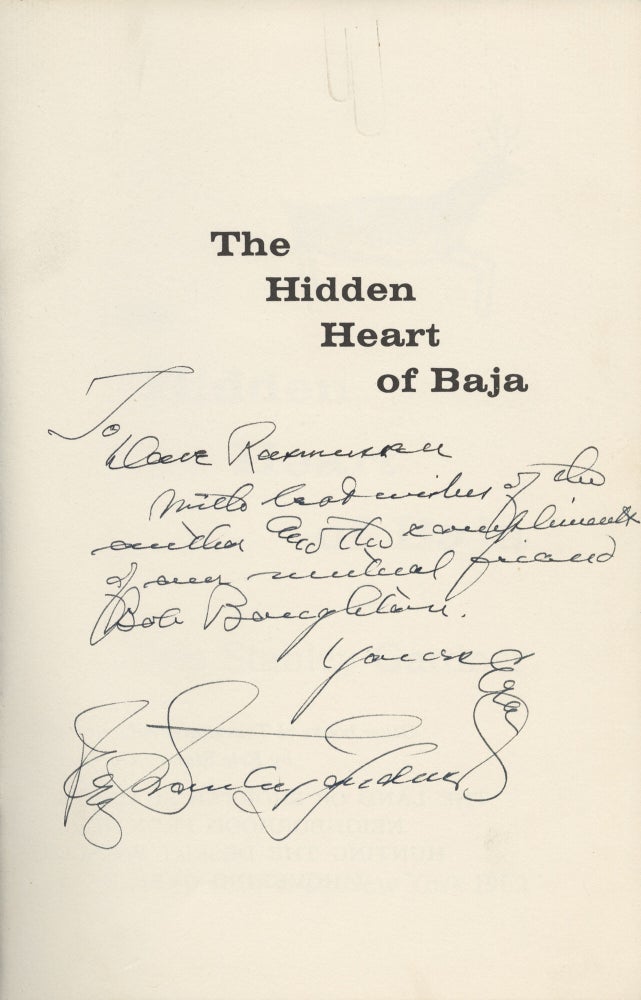 The
Hidden
Heart
of Baja
To
Dave Rasmussen
With best wishes of the
author and the compliments
of our mutual friend
Bob Boughton.
Yours
Erle Stanley Gardner